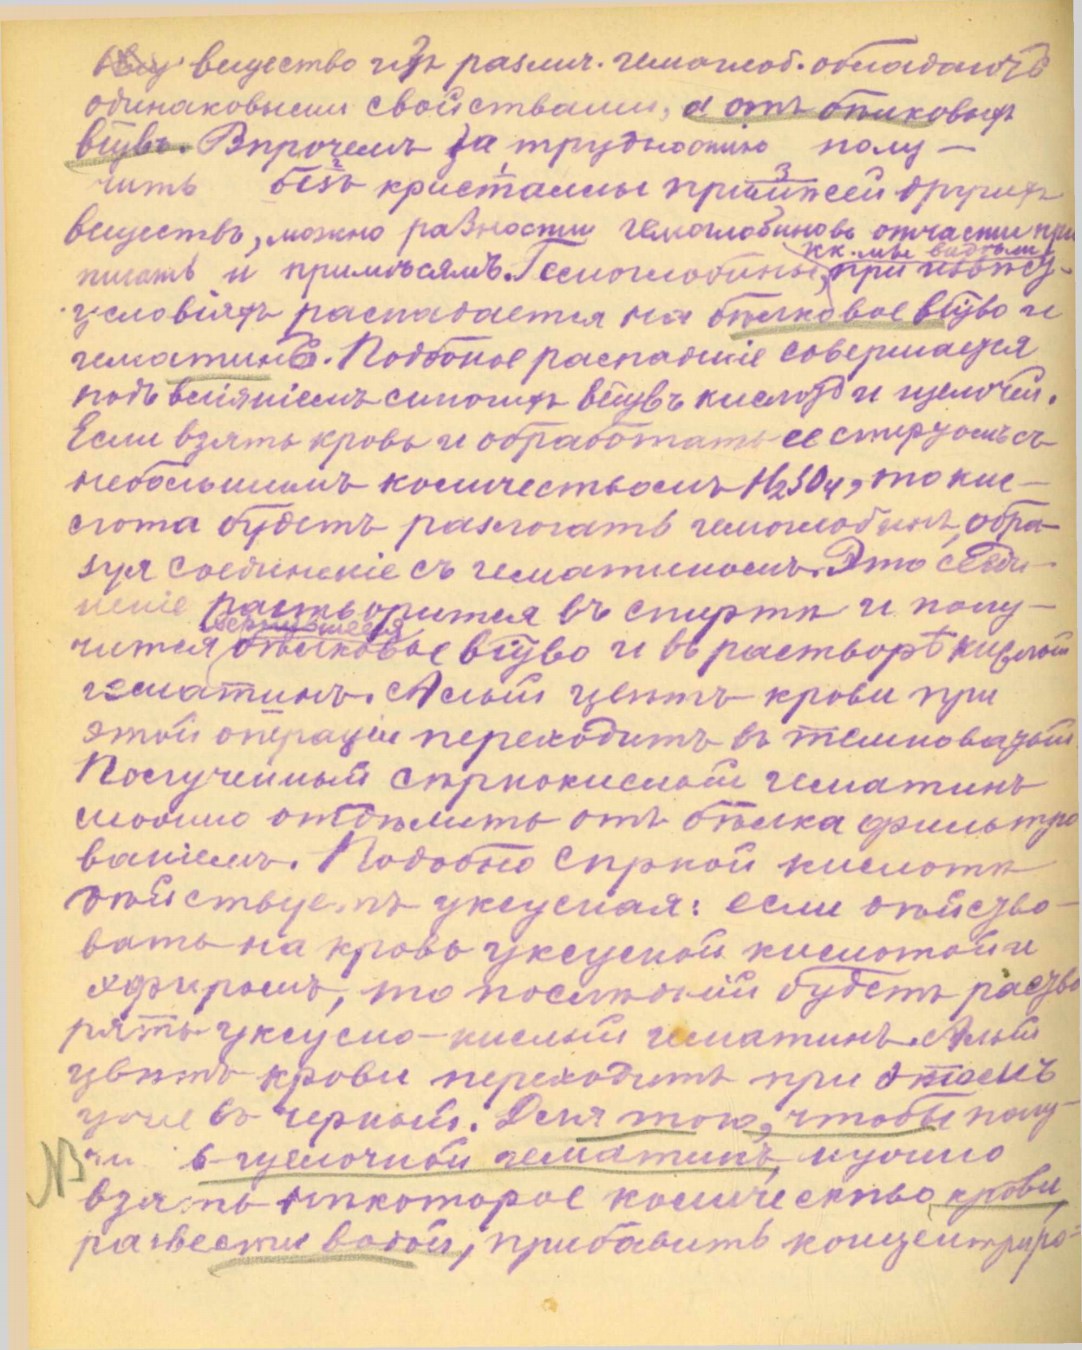 вещество изъ различ. гемоглоб. обладаютъ
одинаковыми свойствами, а отъ бѣлковыхъ
в-щвъ. Впрочемъ за трудностію полу-
чить безъ кристаллы примѣсей другихъ
веществъ, можно разности гемоглобиновъ отчасти при
писать и примѣсямъ. Гемоглобинъ, при извѣст-
условіяхъ распадается на бѣлковое в-щво и
гематинъ. Подобное распаденіе совершается
подъ вліяніемъ многихъ в-щвъ кислотъ и щелочей.
Если взять кровь и обработать ее спиртомъ съ
небольшимъ количествомъ H2SO4, то кис-
лота будетъ разлогать гемоглобинъ, обра-
зуя соединеніе съ гематиномъ. Это соеди-
неніе растворится въ спиртѣ и полу-
чится свернувшееся бѣлковое в-щво и въ растворѣ кислый
гематинъ. Алый цвѣтъ крови при
этой операціи переходитъ въ темноватый.
Полученный сѣрнокислый гематинъ
можно отдѣлить отъ бѣлка фильтро
ваніемъ. Подобно сѣрной кислотѣ
дѣйствуетъ уксусная: если дѣйство-
вать на кровь уксусной кислотой и
эфиромъ, то послѣдній будетъ раство
рять уксусно-кислый гематинъ. Алый
цвѣтъ крови переходитъ при этомъ
уже въ черный. Для того, чтобы полу-
чить щелочной гематинъ, нужно
NB
взять нѣкоторое количество крови,
развести водой, прибавить концентриро-